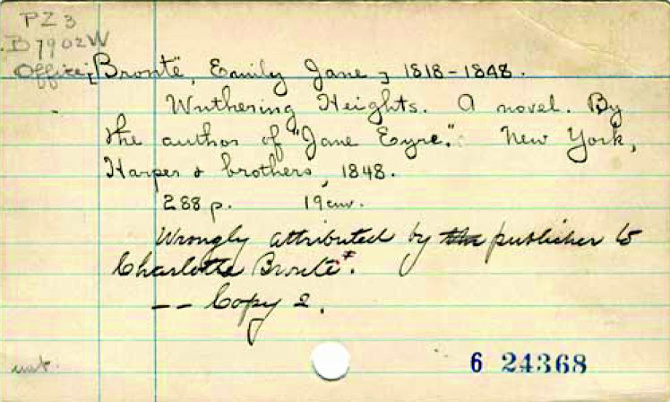 PZ 3
.B7902W
Office
[Brontë, Emily Jane] 1818-1848.
Wuthering Heights. A novel. By
the author of "Jane Eyre." New York,
Harper & brothers, 1848.
288 p. 19cm.
Wrongly attributed by the publisher to
Charlotte Brontë*.
-- Copy 2.
6 24368